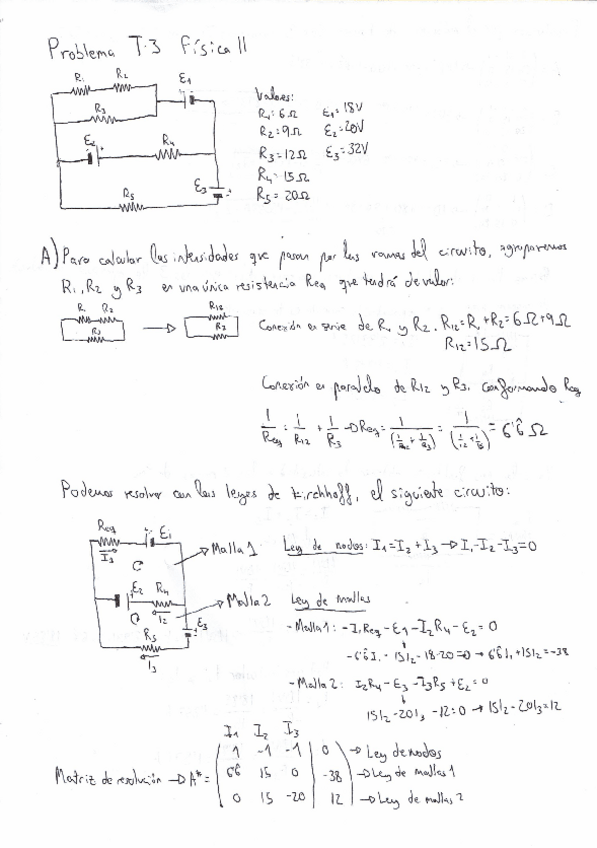 Problema T.3 Física II
R₁ R₂ E₁
R₃
E₂ R₄
E₃
R₅
Valores:
R₁=6Ω E₁=18V
R₂=9Ω E₂=20V
R₃=12Ω E₃=32V
R₄=15Ω
R₅=20Ω
A) Para calcular las intensidades que pasan por las ramas del circuito, agruparemos
R₁, R₂ y R₃ en una única resistencia Req que tendrá de valor:
R₁ R₂ R₁₂
R₃ → R₃
Conexión en serie de R₁ y R₂. R₁₂=R₁+R₂=6Ω+9Ω
R₁₂=15Ω
Conexión en paralelo de R₁₂ y R₃, conformando Req
1/Req = 1/R₁₂ + 1/R₃ → Req = 1/(1/R₁₂ + 1/R₃) = 1/(1/12 + 1/15) = 6'6̂ Ω
Podemos resolver con las leyes de Kirchhoff, el siguiente circuito:
Req E₁
I₃
→ Malla 1 Ley de nodos: I₁=I₂+I₃ → I₁-I₂-I₃=0
E₂ R₄
I₂
→ Malla 2 Ley de mallas
E₃
R₅
I₃
- Malla 1: -I₁Req-E₁-I₂R₄-E₂=0
-6'6̂I₁-15I₂-18-20=0 → 6'6̂I₁+15I₂=-38
- Malla 2: I₂R₄-E₃-I₃R₅+E₂=0
15I₂-20I₃-12=0 → 15I₂-20I₃=12
I₁ I₂ I₃
1 -1 -1 | 0 → Ley de nodos
Matriz de resolución → A*= 6'6̂ 15 0 | -38 → Ley de mallas 1
0 15 -20 | 12 → Ley de mallas 2